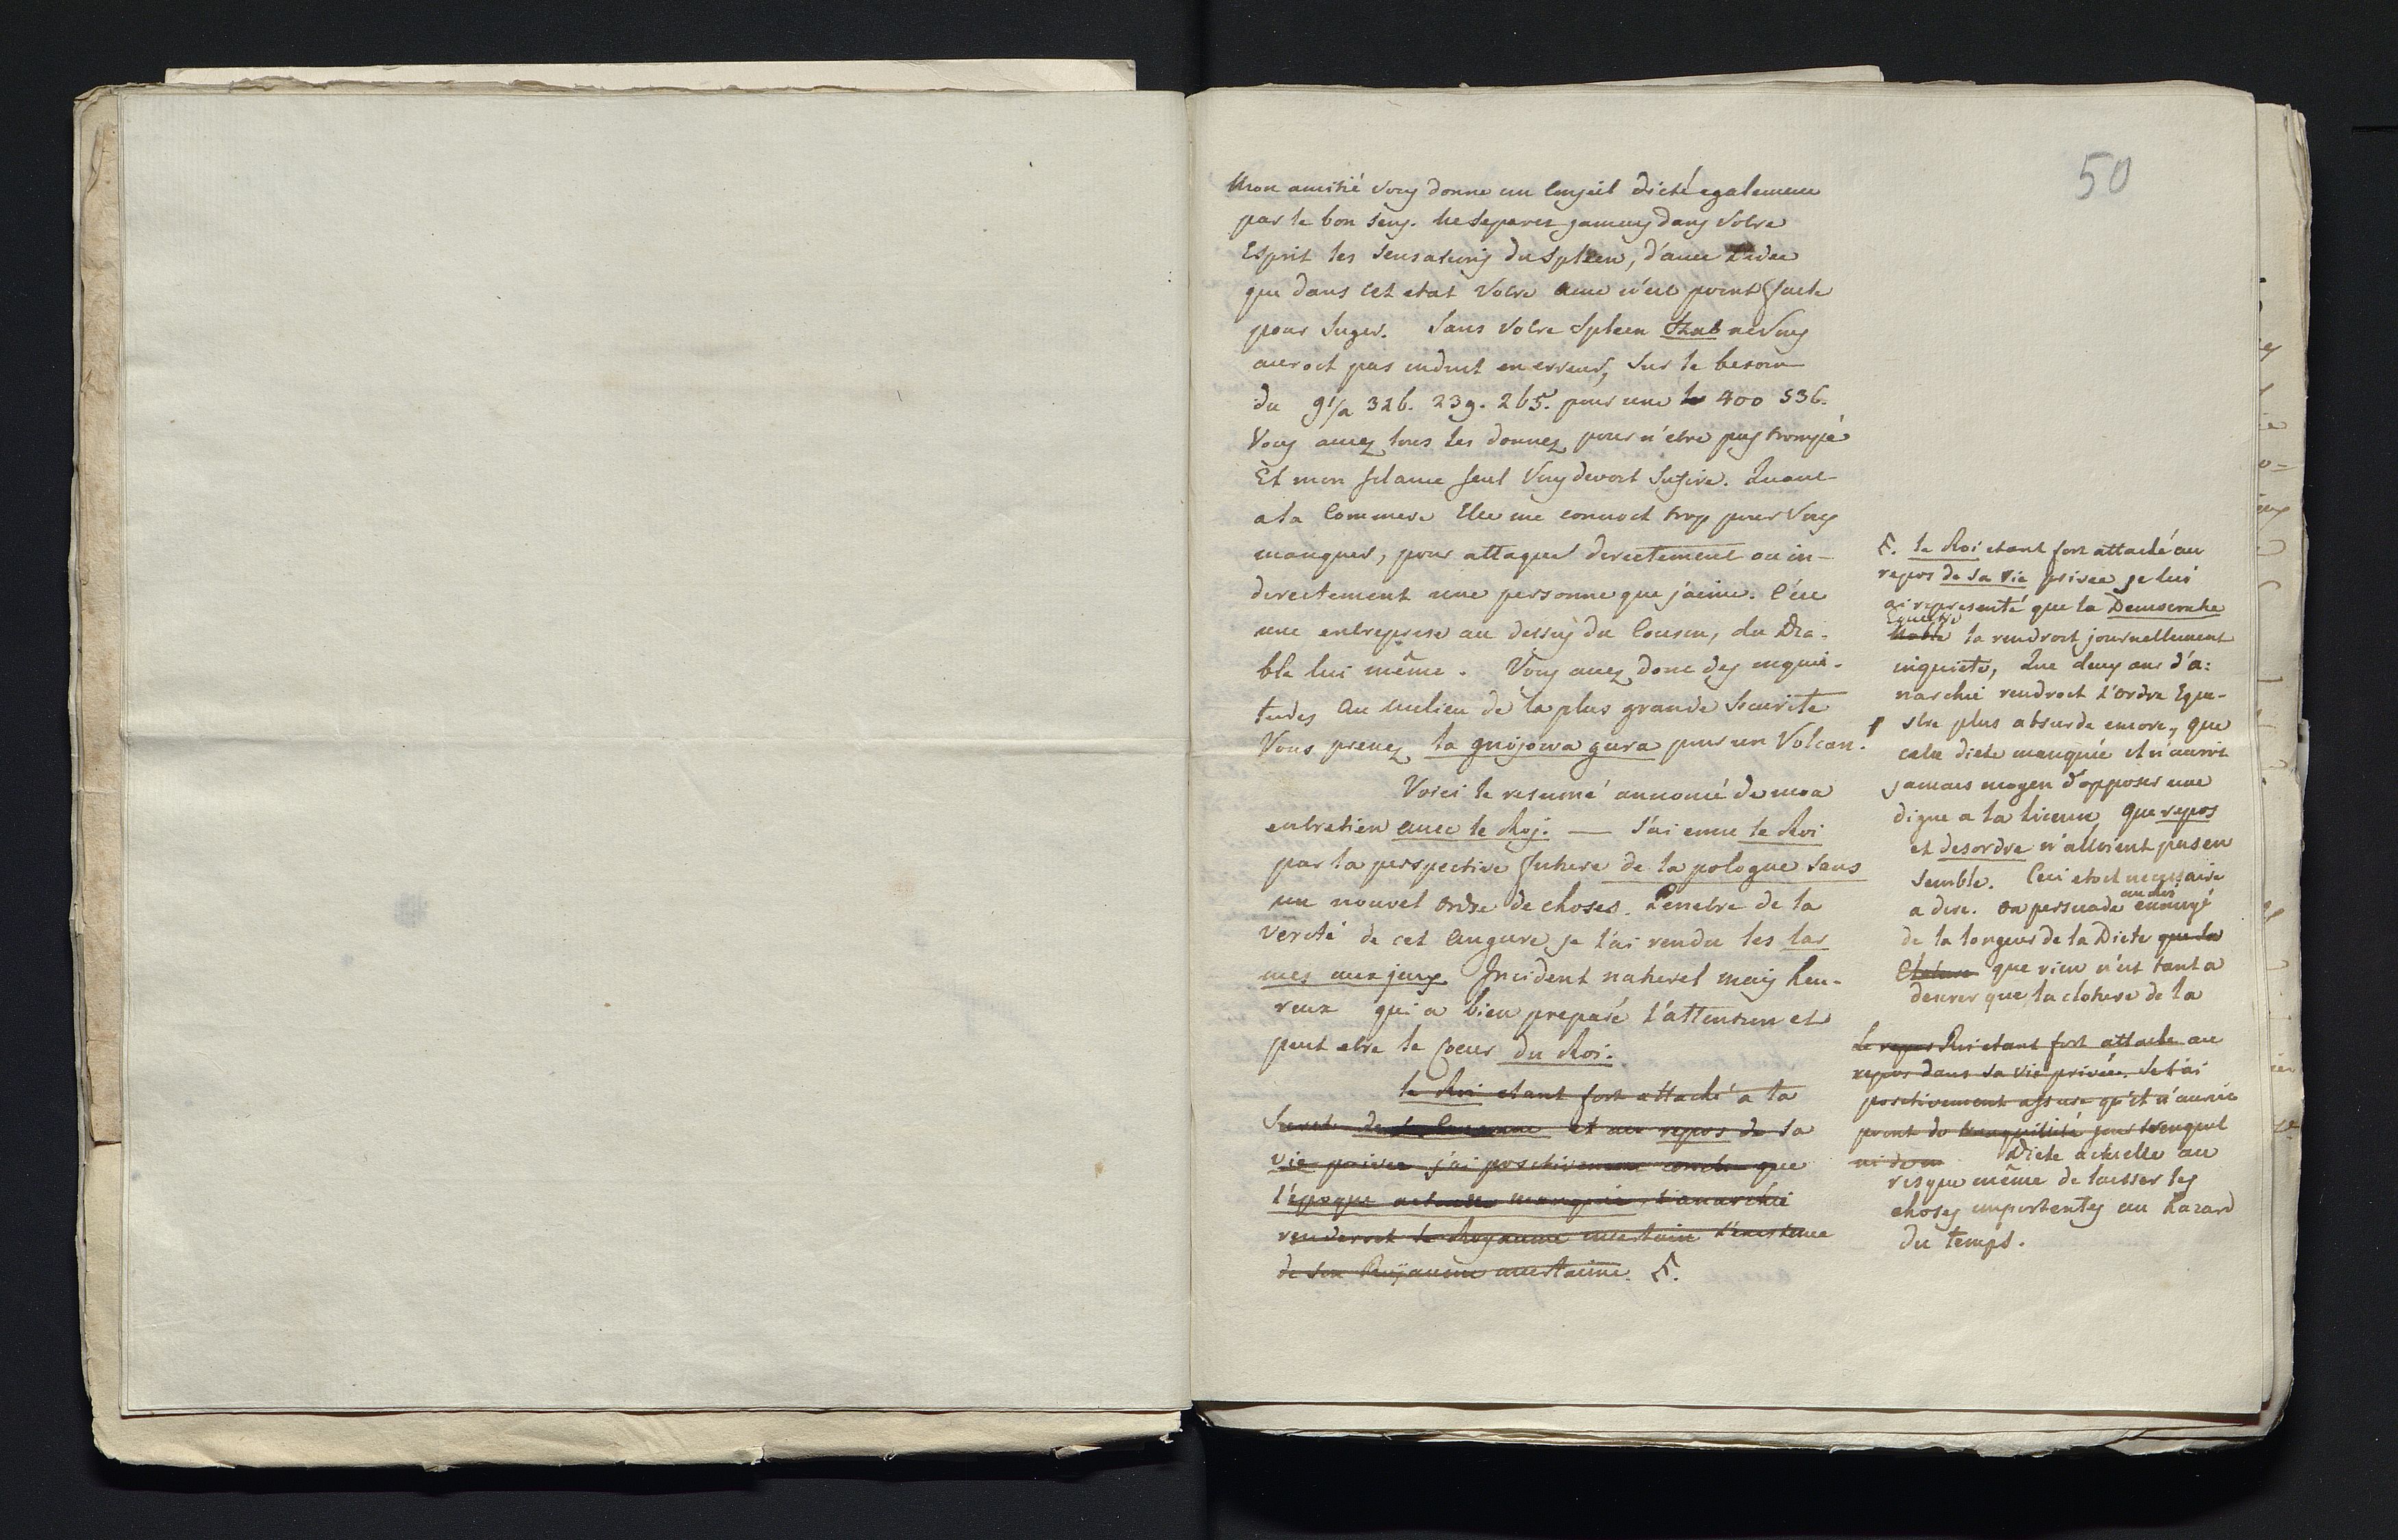 50
Mon amitié Vous donne un Conseil dicté egalement
par le bon sens. Ne separez jamais dans Votre
Esprit les sensations du Spleen, d'avec l'idee
que dans cet etat Votre ame n'est point faite
pour Juger. Sans Votre Spleen ne Vous
auroit pas induit en erreur, sur le besoin
du 91/a 326. 239. 265. pour une 400 536.
Vous avez tous les donnez pour n'etre pas trompé
Et mon silance seul Vous devoit Sufire. Quant
a la Commere Elle me connoit trop pour Vous
manquer, pour attaquer directement ou in-
directement une personne que j'aime. C'est
une entreprise au dessus du Cousin, du Dia-
ble lui même. Vous avez donc des inquié-
tudes au milieu de la plus grande Securite
Vous prenez la gnojowa gura pour un Volcan.
Voici le resumé annoncé de mon
entretien avec le Roj. — J'ai emu le Roi
par la perspective future de la pologne sans
un nouvel ordre de choses. Penetre de la
verité de cet augure je l'ai rendu les lar
mes aux jeux Incident naturel mais heu-
reux qui a bien preparé l'attention et
peut etre le Coeur du Roi.
le Roi etant fort attaché a la
et au repos de sa
vie privee j'ai positivement que
l'époque actuelle manquée, l'anarchie
renderoit le Royaume incertain l'existence
de son Royaume incertaine. F.
F. le Roi etant fort attaché au
repos de sa vie privee je lui
ai representé que la Democratie
Equestre
Noble la rendroit journellement
inquiete, Que deux ans d'a:
narchie rendroit l'ordre Eque-
stre plus absurde encore, que
cette diete manquée il n'auroit
jamais moyen d'opposer une
digue a la licence que repos
et desordre n'alloient pas en
semble. Ceci etoit necessaire
au Roi
a dire. on persuade ennuyé
de la longeur de la Diete que la
Cloture que rien n'est tant a
desirer que la cloture de la
le repos Roi etant fort attache au
repos dans sa vie privée. Je l'ai
positivement assure qu'il n'auroit
point de tranquilité jour trenquil
ni de un Diete actuelle au
risque même de laisser les
choses importentes au hazard
du temps.